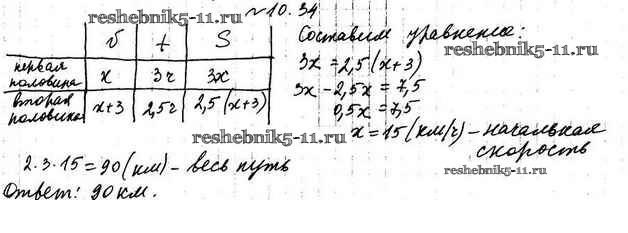 №10.34
reshebnik5-11.ru
v t S
первая половина x 3ч 3x
вторая половина x+3 2,5ч 2,5(x+3)
reshebnik5-11.ru
2·3·15=90(км) – весь путь
Ответ: 90км.
Составим уравнение:
3x=2,5(x+3)
3x-2,5x=7,5
0,5x=7,5
x=15(км/ч) – начальная
скорость
reshebnik5-11.ru
reshebnik5-11.ru